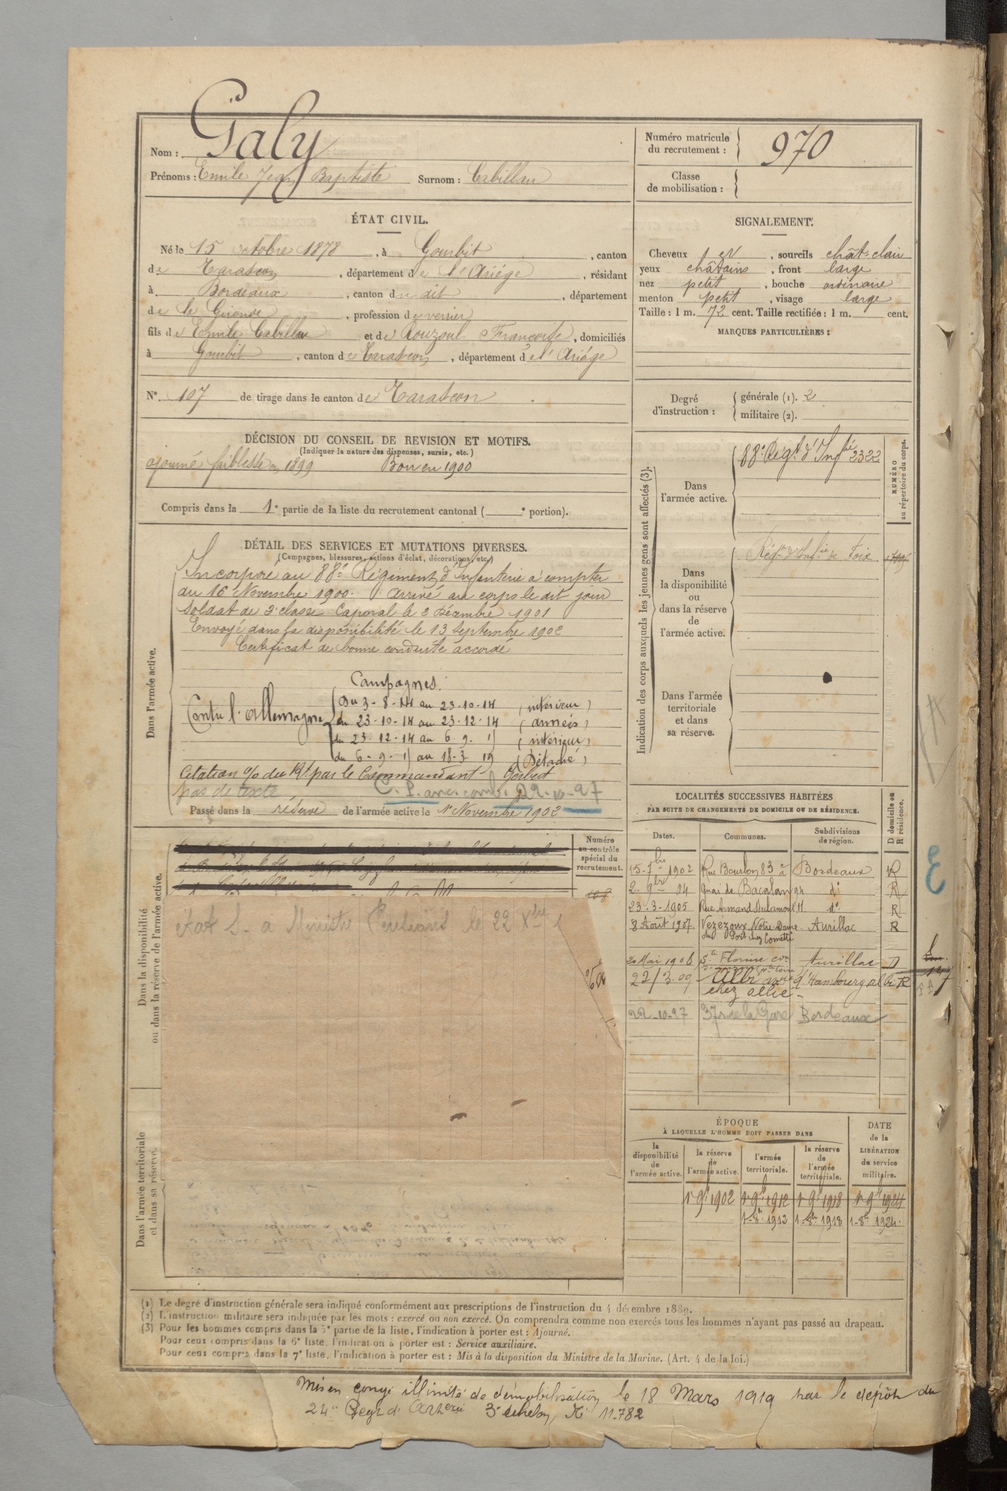 Nom : Galy
Prénoms : Emile Jean Baptiste Surnom : Cabillau
Numéro matricule du recrutement : 970
Classe de mobilisation :
ÉTAT CIVIL.
Né le 15 octobre 1878, à Gourbit, canton
de Tarascon, département de l'Ariége, résidant
à Bordeaux, canton du dit, département
de la Gironde, profession de verrier
fils d'Emile Cabillau et de Rouzoul Francoise, domiciliés
à Gourbit, canton de Tarascon, département de l'Ariége
N° 107 de tirage dans le canton de Tarascon
SIGNALEMENT.
Cheveux , sourcils chât-clair
yeux châtains, front large
nez petit, bouche ordinaire
menton petit, visage large
Taille : 1 m. 72 cent. Taille rectifiée : 1 m. cent.
MARQUES PARTICULIÈRES :
Degré d'instruction : générale (1). 2
militaire (2).
DÉCISION DU CONSEIL DE REVISION ET MOTIFS.
(Indiquer la nature des dispenses, sursis, etc.)
ajourné faiblesse 1899 Bon en 1900
Compris dans la 1e partie de la liste du recrutement cantonal ( e portion).
DÉTAIL DES SERVICES ET MUTATIONS DIVERSES.
(Campagnes, blessures, actions d'éclat, décorations, etc.)
Dans l'armée active.
Incorporé au 88e Régiment d'Infanterie à compter
du 16 Novembre 1900. Arrivé au corps le dit jour
Soldat de 2e classe. Caporal le 2 décembre 1901
Envoyé dans la disponibilité le 13 Septembre 1902
Certificat de bonne conduite accordé
Campagnes.
Contre l'Allemagne
Du 3-8-14 au 23-10-14 (intérieur)
du 23-10-14 au 23-12-14 (armées)
du 23-12-14 au 6-9-1 (intérieur)
du 6-9-1 au 18-3-19 (Détaché)
Citation % du Rt par le Commandant
pas de texte
29-10-27
Passé dans la réserve de l'armée active le 1er Novembre 1902
Indication des corps auxquels les jeunes gens sont affectés (3).
NUMÉRO au répertoire du corps.
Dans l'armée active.
88e Régt d'Infie 2322
Dans la disponibilité ou dans la réserve de l'armée active.
Régt d'Infie de Foix
Dans l'armée territoriale et dans sa réserve.
Dans la disponibilité ou dans la réserve de l'armée active.
Numéro au contrôle spécial du recrutement.
Dans l'armée territoriale et dans sa réserve.
LOCALITÉS SUCCESSIVES HABITÉES
PAR SUITE DE CHANGEMENTS DE DOMICILE OU DE RÉSIDENCE.
Dates. Communes. Subdivisions de région. D domicile ou R résidence.
1902 Rue Bourbon 83 à Bordeaux R
04 Quai de Bacalan 94 d° R
23-3-1905 Rue Armand Dulamon 11 d° R
8 Août 1907 Vezezoux Notre Dame Aurillac R
20 Mai 1908 Ste Florine Aurillac D
22/3 09 Albi
22-10-27 37 r de la Gare Bordeaux
ÉPOQUE
À LAQUELLE L'HOMME DOIT PASSER DANS
la disponibilité de l'armée active. la réserve de l'armée active. l'armée territoriale. la réserve de l'armée territoriale. DATE de la LIBÉRATION du service militaire.
1r 9bre 1902 1r 9bre 1912 1r 9bre 1918 1r 9bre 1924
1-8bre 1913 1-8bre 1918 1-8bre 1924
(1) Le degré d'instruction générale sera indiqué conformément aux prescriptions de l'instruction du 4 décembre 1889.
(2) L'instruction militaire sera indiquée par les mots : exercé ou non exercé. On comprendra comme non exercés tous les hommes n'ayant pas passé au drapeau.
(3) Pour les hommes compris dans la 5e partie de la liste, l'indication à porter est : Ajourné.
Pour ceux compris dans la 6e liste, l'indication à porter est : Service auxiliaire.
Pour ceux compris dans la 7e liste, l'indication à porter est : Mis à la disposition du Ministre de la Marine. (Art. 4 de la loi.)
Mis en congé illimité de démobilisation le 18 Mars 1919 par le dépôt du
24e Regt d'Artrie 3e échelon, N° 11.782